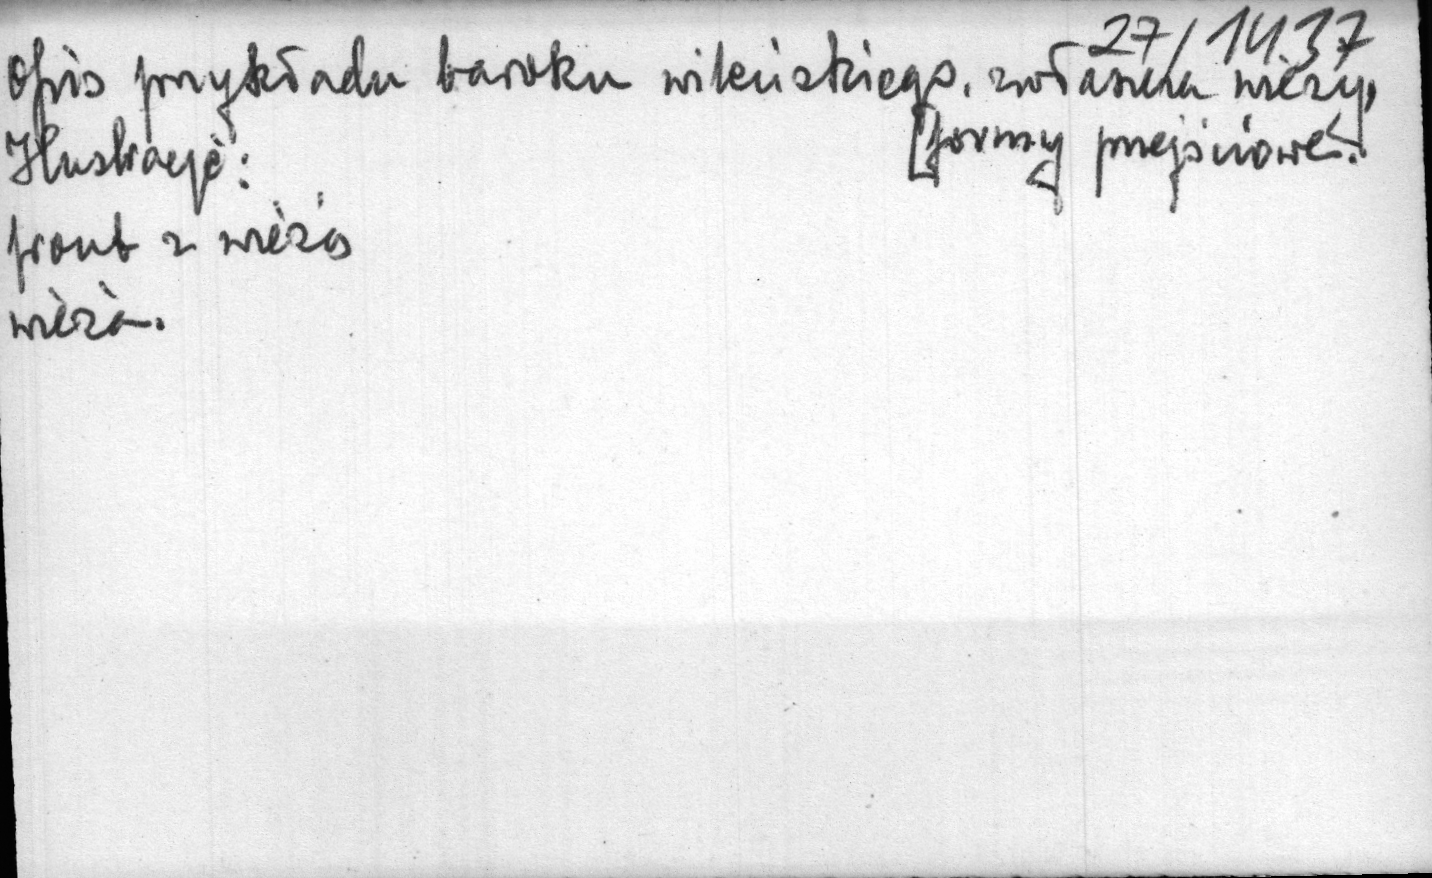 27/1437
Opis przykładu baroku wileńskiego, zwłaszcza wieży,
Ilustracje: [formy przejściowe.]
front z wieżą
wieża.